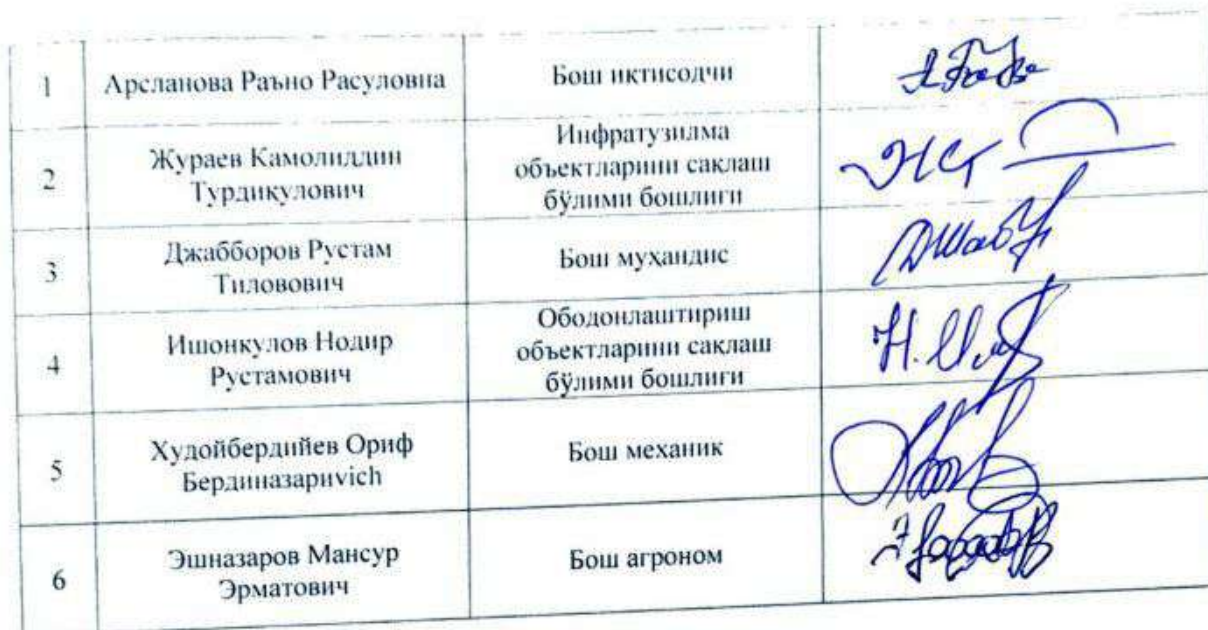 1 Арсланова Раъно Расуловна Бош иктисодчи
2 Жураев Камолиддин Турдиқулович Инфратузилма объектларини сақлаш бўлими бошлиғи
3 Джабборов Рустам Тиловович Бош муҳандис
4 Ишонкулов Нодир Рустамович Ободонлаштириш объектларини сақлаш бўлими бошлиғи
5 Худойбердийев Ориф Бердиназариvich Бош механик
6 Эшназаров Мансур Эрматович Бош агроном